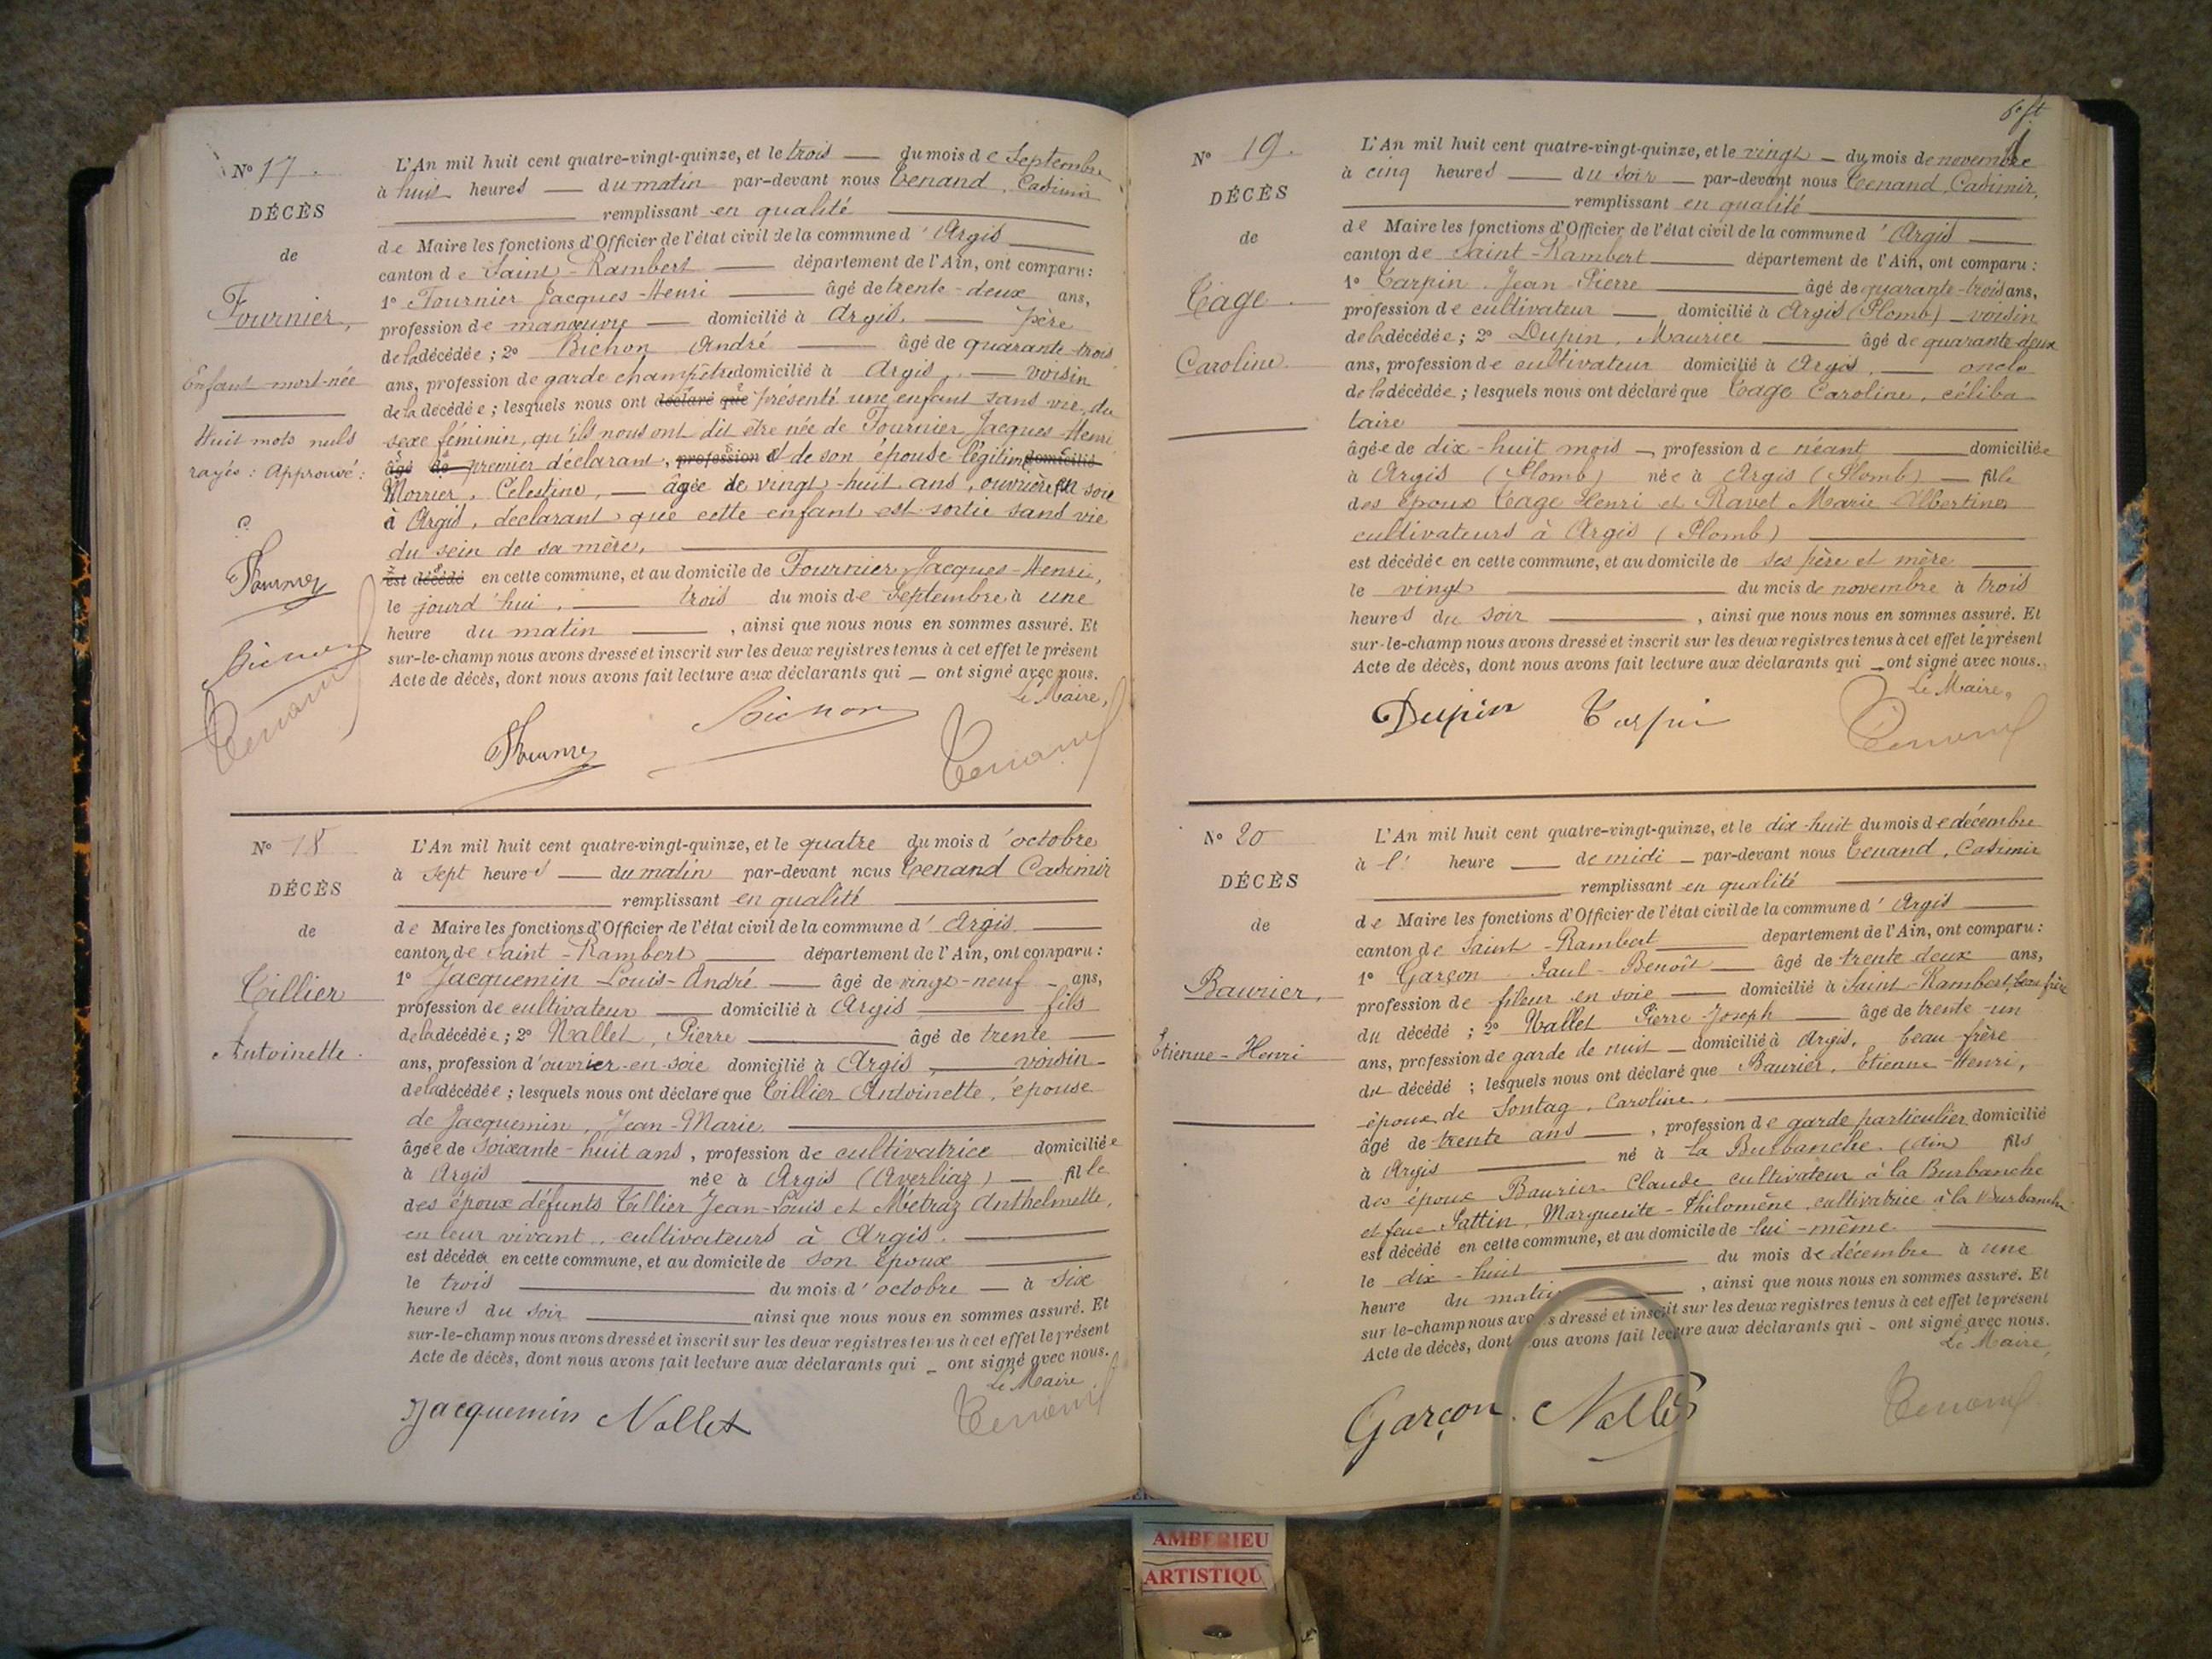 N° 17.
DÉCÈS
de
Fournier,
Enfant mort-née
Huit mots nuls
rayés : Approuvé :
Bichon
Tenand
L'An mil huit cent quatre-vingt-quinze, et le trois — du mois de Septembre
à huit heures — du matin par-devant nous Tenand, Casimir
remplissant en qualité
de Maire les fonctions d'Officier de l'état civil de la commune d'Argis
canton de Saint-Rambert — département de l'Ain, ont comparu :
1° Fournier Jacques-Henri — âgé de trente-deux ans,
profession de manœuvre — domicilié à Argis, — père
de la décédée ; 2° Bichon André — âgé de quarante-trois
ans, profession de garde champêtre domicilié à Argis, — voisin
de la décédée ; lesquels nous ont déclaré que présenté une enfant sans vie, du
sexe féminin, qu'ils nous ont dit être née de Fournier Jacques-Henri
âgé de premier déclarant, profession d et de son épouse légitime domicilié
Morrier, Célestine, — âgée de vingt-huit ans, ouvrière en soie
à Argis, déclarant que cette enfant est sortie sans vie
du sein de sa mère,
Est décédé en cette commune, et au domicile de Fournier Jacques-Henri,
le jourd'hui, — trois du mois de Septembre à une
heure du matin — , ainsi que nous nous en sommes assuré. Et
sur-le-champ nous avons dressé et inscrit sur les deux registres tenus à cet effet le présent
Acte de décès, dont nous avons fait lecture aux déclarants qui — ont signé avec nous.
Le Maire,
Bichon
Tenand
N° 18
DÉCÈS
de
Tillier
Antoinette.
L'An mil huit cent quatre-vingt-quinze, et le quatre du mois d'octobre
à sept heures — du matin par-devant nous Tenand Casimir
remplissant en qualité
de Maire les fonctions d'Officier de l'état civil de la commune d'Argis
canton de Saint-Rambert — département de l'Ain, ont comparu :
1° Jacquemin Louis-André — âgé de vingt-neuf — ans,
profession de cultivateur — domicilié à Argis — fils
de la décédée ; 2° Nallet, Pierre — âgé de trente —
ans, profession d'ouvrier-en-soie domicilié à Argis, — voisin -
de la décédée ; lesquels nous ont déclaré que Tillier Antoinette, épouse
de Jacquemin, Jean-Marie,
âgée de soixante-huit ans, profession de cultivatrice domiciliée
à Argis — née à Argis (Averliaz) — fille
des époux défunts Tillier Jean-Louis et Métraz Anthelmette,
en leur vivant, cultivateurs à Argis.
est décédée en cette commune, et au domicile de son époux
le trois — du mois d'octobre — à six
heures du soir — ainsi que nous nous en sommes assuré. Et
sur-le-champ nous avons dressé et inscrit sur les deux registres tenus à cet effet le présent
Acte de décès, dont nous avons fait lecture aux déclarants qui — ont signé avec nous.
Le Maire
Jacquemin Nallet
Tenand
N° 19.
DÉCÈS
de
Tage.
Caroline.
L'An mil huit cent quatre-vingt-quinze, et le vingt — du mois de novembre
à cinq heures — du soir — par-devant nous Tenand, Casimir,
remplissant en qualité
de Maire les fonctions d'Officier de l'état civil de la commune d'Argis —
canton de Saint-Rambert — département de l'Ain, ont comparu :
1° Carpin Jean Pierre — âgé de quarante-trois ans,
profession de cultivateur — domicilié à Argis (Plomb) — voisin
de la décédée ; 2° Dupin, Maurice — âgé de quarante-deux
ans, profession de cultivateur domicilié à Argis, — oncle
de la décédée ; lesquels nous ont déclaré que Tage Caroline, céliba
taire
âgée de dix-huit mois — profession de néant — domiciliée
à Argis (Plomb) née à Argis (Plomb) — fille
des époux Tage Henri et Ravet Marie Albertine,
cultivateurs à Argis (Plomb)
est décédée en cette commune, et au domicile de ses père et mère
le vingt — du mois de novembre à trois
heures du soir — , ainsi que nous nous en sommes assuré. Et
sur-le-champ nous avons dressé et inscrit sur les deux registres tenus à cet effet le présent
Acte de décès, dont nous avons fait lecture aux déclarants qui — ont signé avec nous.
Le Maire,
Dupin Carpin
Tenand
N° 20
DÉCÈS
de
Baurier,
Etienne-Henri
L'An mil huit cent quatre-vingt-quinze, et le dix-huit du mois de décembre
à l' heure — de midi — par-devant nous Tenand, Casimir
remplissant en qualité
de Maire les fonctions d'Officier de l'état civil de la commune d'Argis
canton de Saint-Rambert — département de l'Ain, ont comparu :
1° Garçon Paul-Benoît — âgé de trente deux ans,
profession de fileur en soie — domicilié à Saint-Rambert, beau frère
du décédé ; 2° Nallet Pierre Joseph — âgé de trente-un
ans, profession de garde de nuit — domicilié à Argis, beau-frère
du décédé ; lesquels nous ont déclaré que Baurier, Etienne-Henri,
époux de Sontag, Caroline.
âgé de trente ans — , profession de garde particulier domicilié
à Argis — né à La Burbanche (Ain) fils
des époux Baurier Claude cultivateur à la Burbanche
et feue Pattin, Marguerite-Philomène, cultivatrice à la Burbanche
est décédé en cette commune, et au domicile de lui-même
le dix-huit — du mois de décembre à une
heure du matin — , ainsi que nous nous en sommes assuré. Et
sur-le-champ nous avons dressé et inscrit sur les deux registres tenus à cet effet le présent
Acte de décès, dont nous avons fait lecture aux déclarants qui — ont signé avec nous.
Le Maire,
Garçon. Nallet
Tenand
AMBERIEU
ARTISTIQU